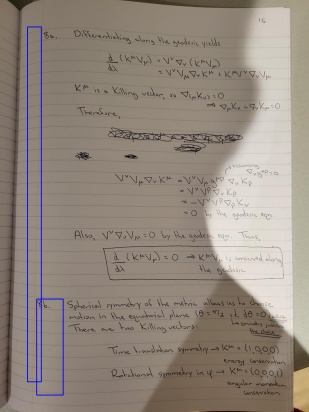 16
8a. Differentiating along the geodesic yields
d/dλ (K^μ V_μ) = V^ν ∇_ν (K^μ V_μ)
= V^ν V_μ ∇_ν K^μ + K^μ V^ν ∇_ν V_μ
K^μ is a Killing vector, so ∇_(μ K_ν) = 0
Therefore,
V^ν V_μ ∇_ν K^μ = V^ν V_μ g^μρ ∇_ν K_ρ
= V^ν V^ρ ∇_ν K_ρ
= -V^ν V^ρ ∇_ρ K_ν
= 0 by the geodesic eqn.
Also, V^ν ∇_ν V_μ = 0 by the geodesic eqn. Thus,
d/dλ (K^μ V_μ) = 0 → K^μ V_μ is conserved along
the geodesic
8b. Spherical symmetry of the metric allows us to choose
motion in the equatorial plane (θ = π/2, dθ = 0)
There are two Killing vectors:
Time translation symmetry → K^μ = (1,0,0,0)
energy conservation
Rotational symmetry in φ → K^μ = (0,0,0,1)
angular momentum
conservation